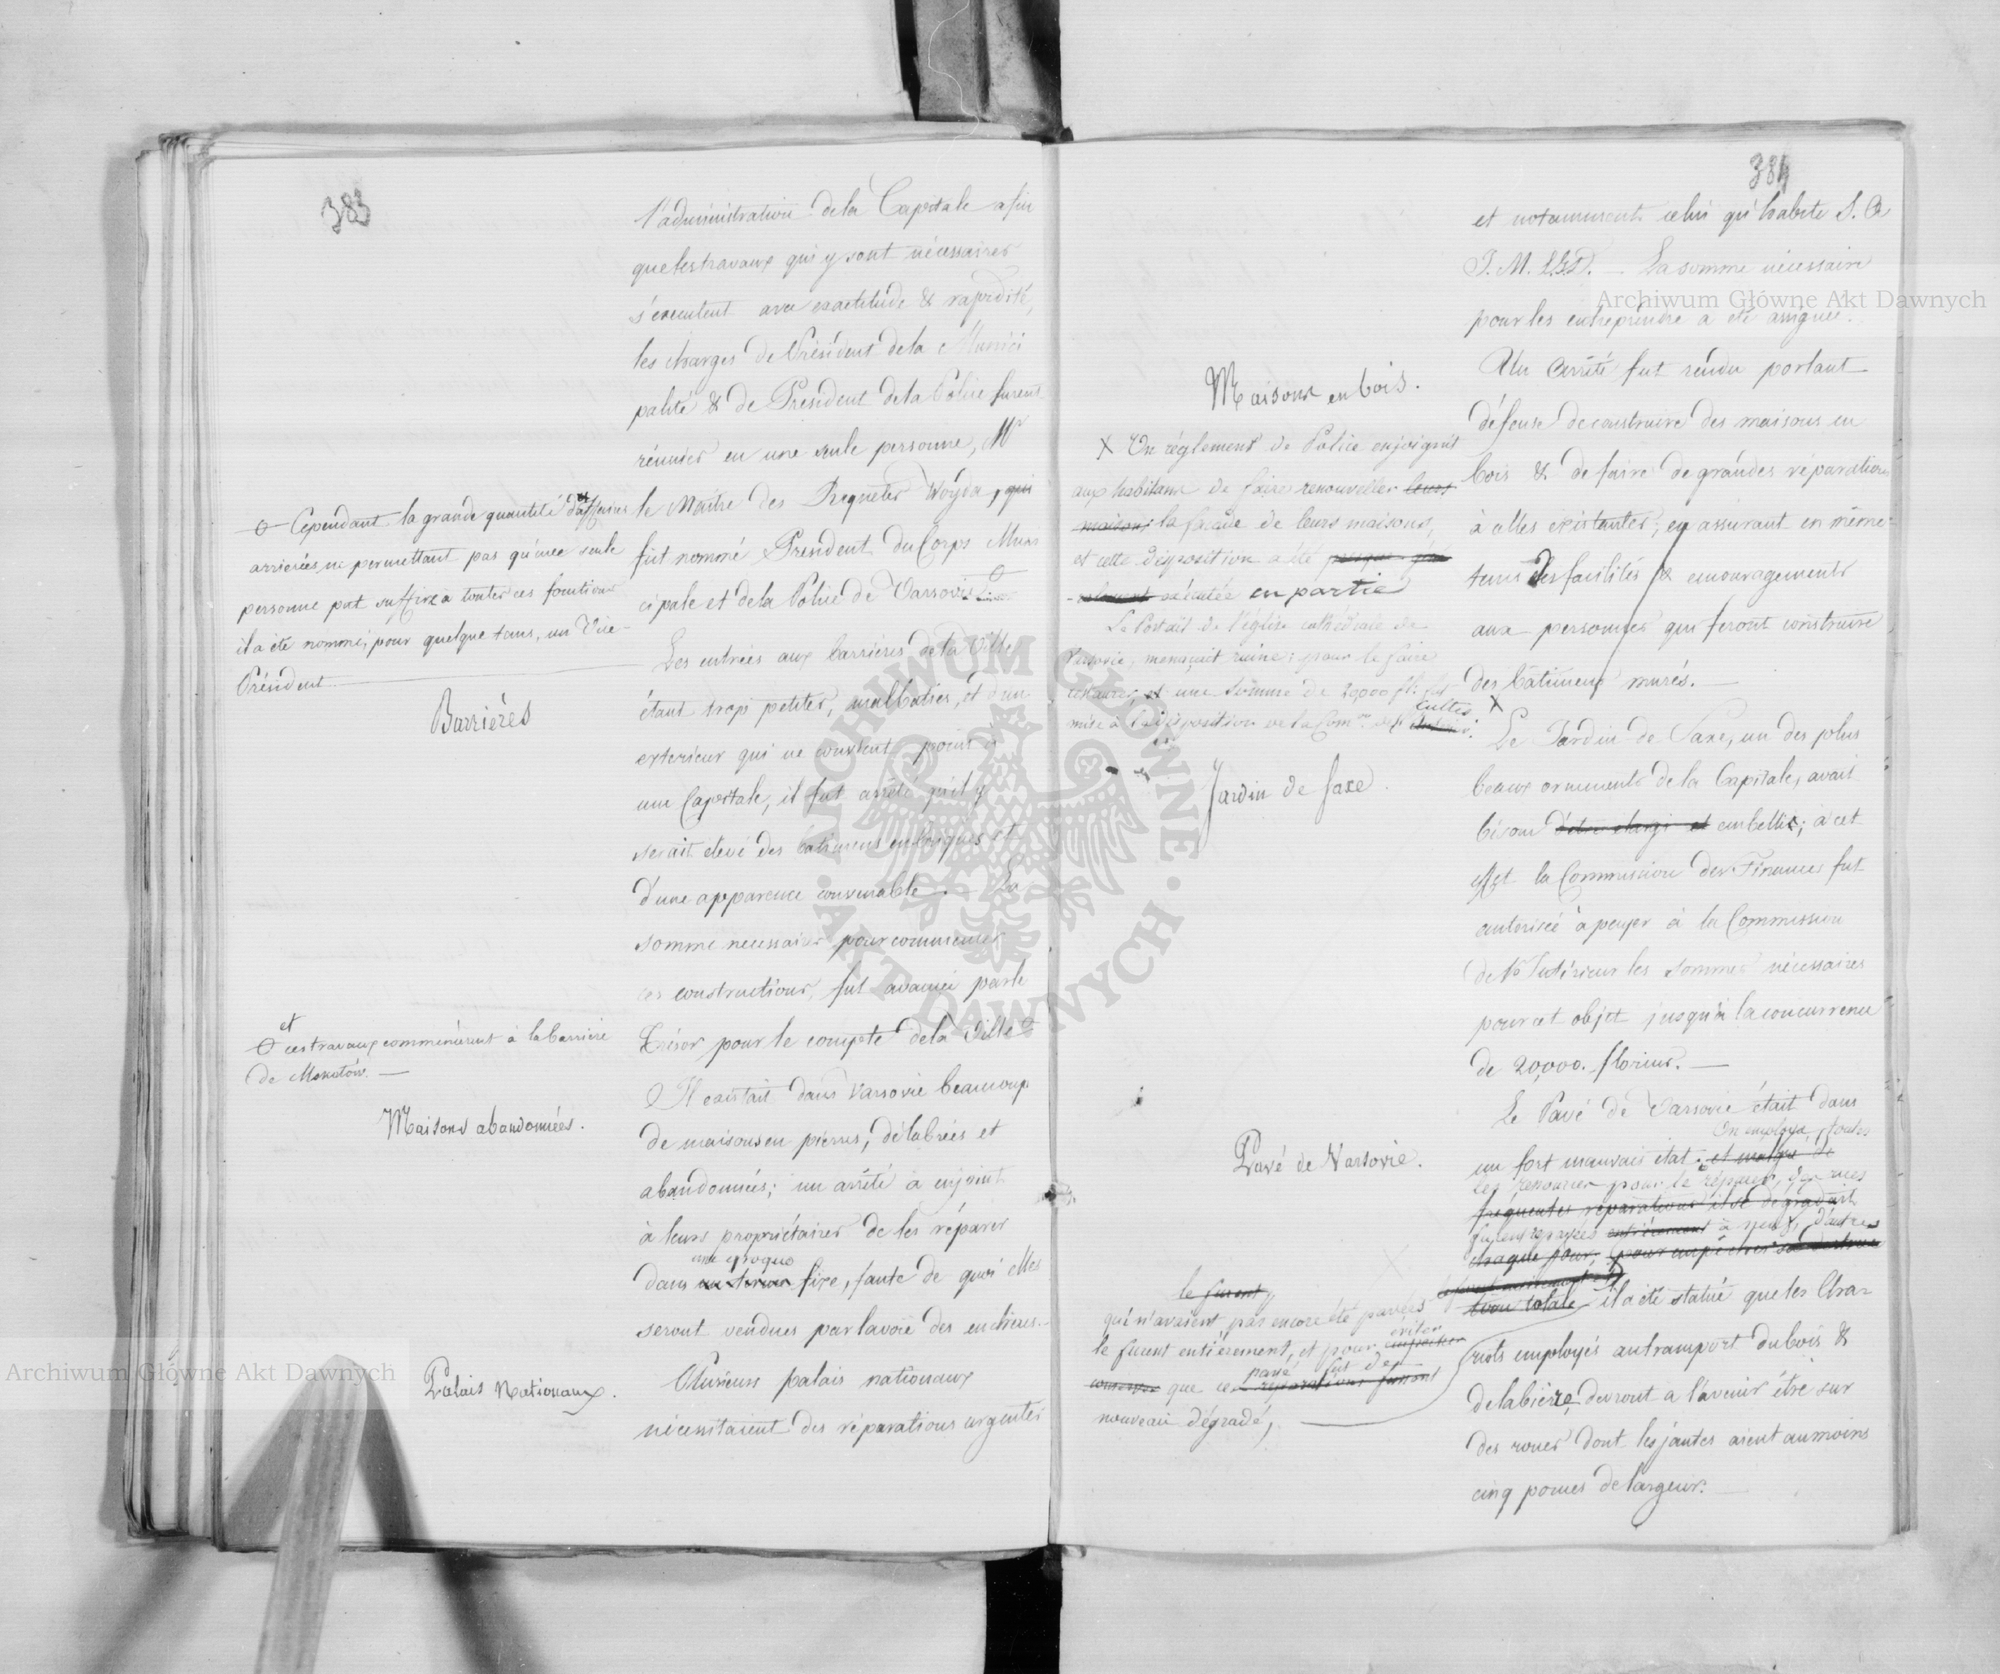 383
l'administration de la Capitale afin
que les travaux qui y sont nécessaires
s'executent avec exactitude & rapidité,
les charges de Président de la Munici
palité & de President de la Police furent
réunies en une seule personne, Mr
le Maitre des Requetes Woyda, qui
fut nommé President du Corps Muni
cipale et de la Police de Varsovie
O Cependant la grande quantité d'affaires
arrierées ne permettant pas qu'une seule
personne put suffire a toutes ces fonctions
il a eté nommé, pour quelque tems, un Vice-
Président.
Barrières
Les entrées aux barrières de la Ville
étant trop petites, mal baties, et d'un
exterieur qui ne convient point à
une Capitale, il fut arrêté qu'il y
serait elevé des batimens en briques et
d'une apparence convenable. — La
somme necessaire pour commencer
ces constructions, fut avancée par le
Trésor pour le compte de la Ville
et
O ces travaux commencèrent à la barrière
de Mokotów. —
Maisons abandonnées.
Il existait dans Varsovie beaucoup
de maisons en pierres, délabrées et
abandonnées; un arrêté a enjoint
à leurs propriétaires de les réparer
une epoque
dans un terme fixe, faute de quoi elles
seront vendues par la voie des enchères. —
Palais Nationaux.
Plusieurs palais nationaux
nécessitaient des réparations urgentes
384
et notamment celui qu'habite S. A
I. M. L. G. D. — La somme nécessaire
pour les entreprendre a eté assignée.
Maisons en bois.
Un Arrêté fut rendu portant
défense de construire des maisons en
bois & de faire de grandes réparations
à celles existantes, en assurant en même-
tems des facilités & encouragements
aux personnes qui feront construire
des bâtimens murés. —
X Un réglement de Police enjoignit
aux habitans de faire renouveller leurs
maisons la facade de leurs maisons,
et cette disposition a été
exécutée en partie
Le Portail de l'église cathédrale de
Varsovie, menaçait ruine; pour le faire
restaurer, une somme de 20,000 fl. fut
cultes
mise à la disposition de la Comon des
X
Jardin de Saxe.
Le Jardin de Saxe, un des plus
beaux ornements de la Capitale, avait
besoin d'etre elargi et embellie; à cet
effet la Commission des Finances fut
autorisée à payer à la Commission
de l'Intérieur les sommes nécessaires
pour cet objet jusqu'à la concurrence
de 20,000. florins. —
Pavé de Varsovie.
Le Pavé de Varsovie était dans
On employa toutes
un fort mauvais état. et malgré de
les ressources pour le réparer, des rues
fréquentes réparations il se dégradait
furent repavées entièrement à neuf, d'autres
chaque jour, pour empêcher sa destruc
tion totale il a été statué que les Cha-
riots employés au transport du bois &
de la bière, devront a l'avenir être sur
des roues dont les jantes aient au moins
cinq pouces de largeur. —
le furent
qui n'avaient pas encore été pavées
le furent entièrement, et pour empêcher
eviter
que ce
pavé fut de
reparations fussent
nouveau dégradé,
Archiwum Główne Akt Dawnych
Archiwum Główne Akt Dawnych
ARCHIWUM GŁÓWNE · AKT DAWNYCH ·